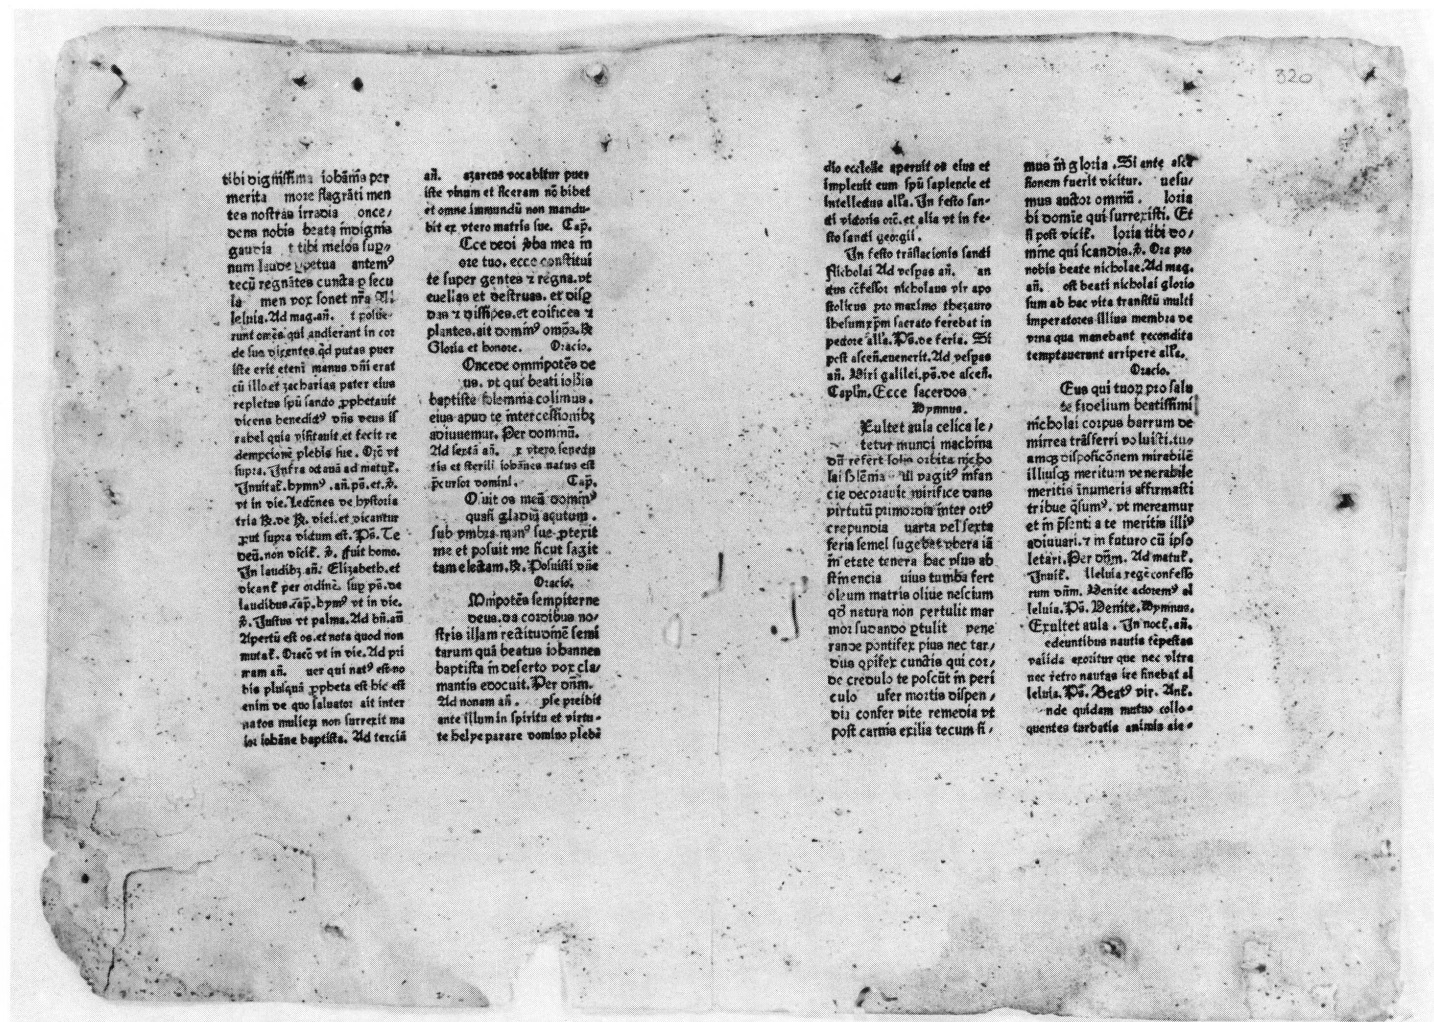 320
tibi digniſſima iohānis per
merita more flagrāti men
tes noſtras irradia once/
dens nobis beata īn digma
gaudia t tibi melos ſup
num laude ꝑpetua antemꝰ
tecū regnātes cuncta ꝑ ſecu
la men vox ſonet nr̄a Al
leluia. Ad mag. an̄. t poſue-
runt om̄es qui audierant in cor
de ſuo dicentes qd̓ putas puer
iſte erit eteni manus dn̄i erat
cū illo. et zacharias pater eius
repletus ſpū ſancto ꝓphetauit
dicens benedictꝰ dn̄s deus iſ
rahel quia viſitauit. et fecit re
demptionē plebis ſue. Orō vt
ſupra. Infra octauā ad matut̓.
Inuitat̓. hymnꝰ. an̄. ps̄. et. v̓.
vt in die. Lectōnes de hyſtoria
tria ℟. de ℟. diei. et dicantur
ꝓut ſupra dictum eſt. Ps̄. Te
deū. non dicit̓. v̓. Fuit homo.
In laudibꝫ an̄. Elizabeth. et
dicant̓ per ordinē ſup ps̄. de
laudibus. cap̄. hymꝰ vt in die.
v̓. Juſtus vt palma. Ad bn̄. an̄
Apertū eſt os. et nota quod non
mutat̓. Oracō vt in die. Ad pri
mam an̄. uer qui natꝰ eſt no
bis pluſquā ꝓpheta eſt hic eſt
enim de quo ſaluator ait inter
natos mulierꝫ non ſurrexit ma
ior iohāne baptiſta. Ad terciā
an̄. azarenus vocabitur puer
iſte vinum et ſiceram nō bibet
et omne immundū non mandu-
bit ex vtero matris ſue. Cap̄.
Cce dedi v̓ba mea in
ore tuo. ecce conſtitui
te ſuper gentes ⁊ regna. vt
euellas et deſtruas. et diſꝑ
das ⁊ diſſipes. et edifices ⁊
plantes. ait dominꝰ omps̄. ℟
Gloria et honore. Oracio.
Oncede omnipotēs de
us. vt qui beati iohīs
baptiſte ſolemnia colimus.
eius apud te interceſſionibꝫ
adiuuemur. Per dominū.
Ad ſextā an̄. x vtero ſenectu
tis et ſterili iohānes natus eſt
p̄curſor domini. Cap̄.
O uit os meū dominꝰ
quaſi gladiū acutum.
ſub vmbra manꝰ ſue ꝓtexit
me et poſuit me ſicut ſagit
tam electam. ℟. Poſuiſti dn̄e
Oracio.
Mnipotēs ſempiterne
deus. da cordibus no/
ſtris illam rectitudinē ſemi
tarum quā beatus iohannes
baptiſta in deſerto vox cla/
mantis edocuit. Per dn̄m.
Ad nonam an̄. pſe preibit
ante illum in ſpiritu et virtu-
te helye parare domino plebē
dio eccleſie aperuit os eius et
impleuit eum ſpū ſapiencie et
intellectus all̓a. In feſto ſan-
cti victoris orō. et alia vt in fe-
ſto ſancti georgii.
In feſto trāſlacionis ſancti
Nicholai Ad veſpas an̄. an
ctus cōfeſſor nicholaus vir apo
ſtolicus pro maximo thezauro
iheſum xp̄m ſacrato ferebat in
pectore all̓a. Ps̄. de feria. Si
poſt aſcen̄. euenerit. Ad veſpas
an̄. Viri galilei. ps̄. de aſcen̄.
Caplm̄. Ecce ſacerdos
Hymnus.
Exultet aula celica le/
tetur mundi machina
dū refert ſolis orbita nicho
lai ſolēnia ui vagitꝰ infan
cie decorauit mirifice dans
virtutū primordia inter ortꝰ
crepundia uarta vel ſexta
feria ſemel ſugebat vbera iā
in etate tenera hac vſus ab
ſtinencia uius tumba fert
oleum matris oliue neſcium
qd̓ natura non pertulit mar
mor ſudando ꝓtulit pene
rande pontifex pius nec tar/
dus opifex cunctis qui cor/
de credulo te poſcūt in peri
culo ufer mortis diſpen/
dia confer vite remedia vt
poſt carnis exilia tecum ſi/
mus in gloria. Si ante aſcē
ſionem fuerit dicitur. ueſu/
mus auctor omniū. loria
bi domine qui ſurrexiſti. Et
ſi poſt dicit̓. loria tibi do/
mine qui ſcandis. v̓. Ora pro
nobis beate nicholae. Ad mag.
an̄. oſt beati nicholai glorio
ſum ab hac vita tranſitū multi
imperatores illius membra de
vrna qua manebant recondita
temptauerunt arripere all̓a.
Oracio.
Eus qui tuorꝫ pro ſalu
te fidelium beatiſſimi
nicholai corpus barrum de
mirrea trāſferri voluiſti. tu
amqꝫ diſpoſicōnem mirabilē
illiuſqꝫ meritum venerabile
meritis inumeris affirmaſti
tribue qſumꝰ. vt mereamur
et in pſ̄enti a te meritis illiꝰ
adiuuari. ⁊ in futuro cū ipſo
letari. Per dn̄m. Ad matut̓.
Inuit̓. lleluia regē confeſſo
rum dn̄m. Venite adoremꝰ al
leluia. Ps̄. Venite. Hymnus.
Exultet aula. In noct̓. an̄.
edeuntibus nautis tēpeſtas
valida exoritur que nec vltra
nec retro nautas ire ſinebat al
leluia. Ps̄. Beatꝰ vir. Ant̓.
nde quidam mutuo collo-
quentes turbatis animis aie-